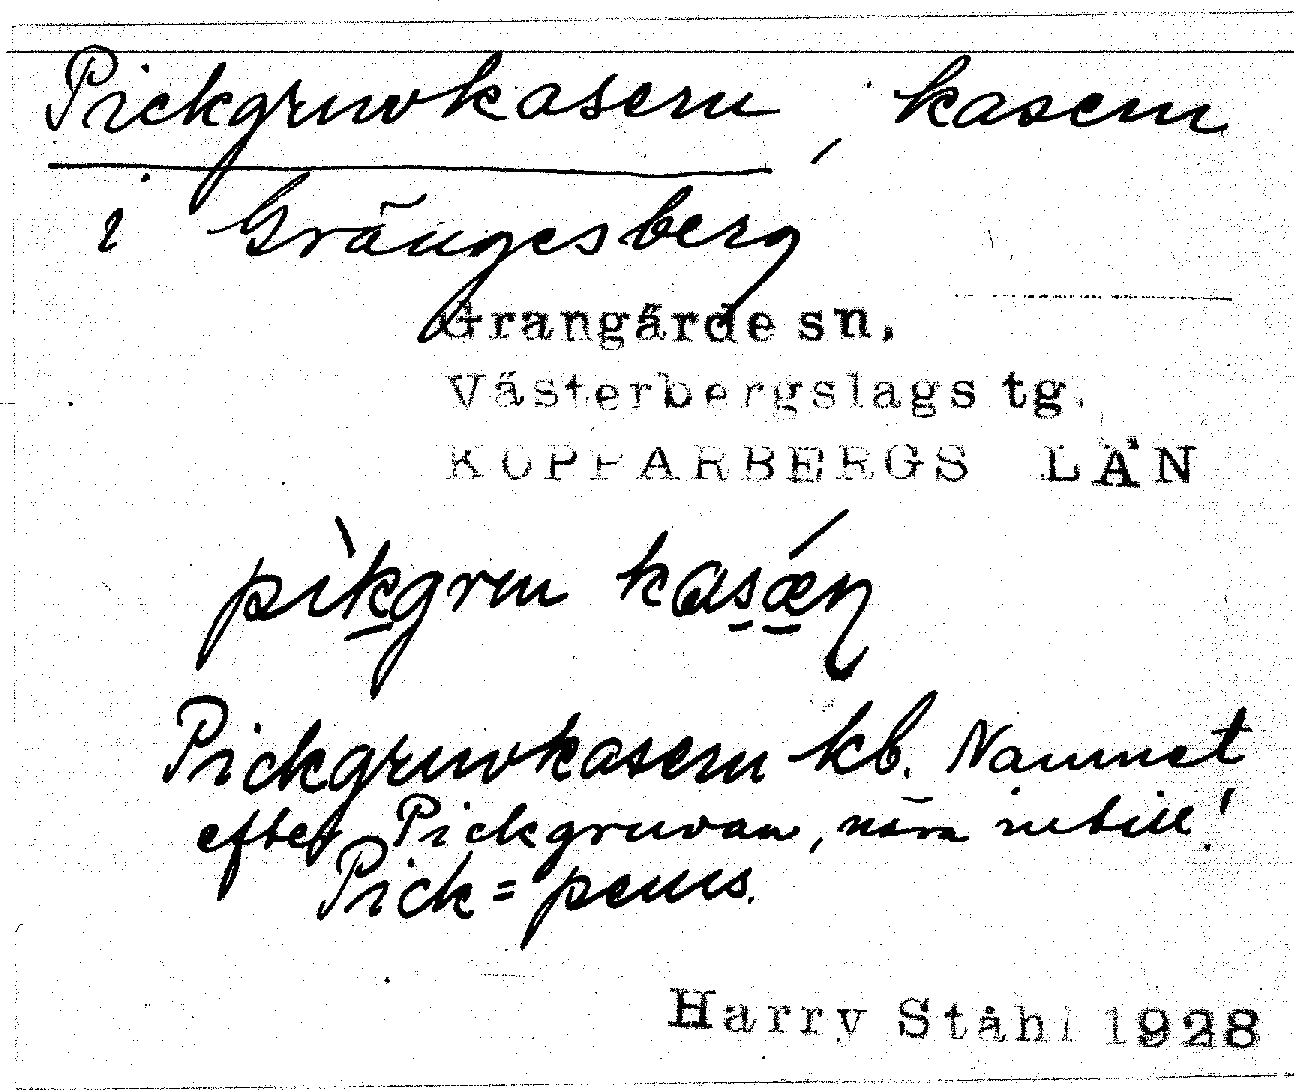 Pickgruvkasern, kasern
i Grängesberg
Grangärde sn.
Västerbergslags tg.
KOPPARBERGS LÄN
pìkgruv kasǽɳ
Pickgruvkasern kb. Namnet
efter Pickgruvan, nära intill!
Pick = penis.
Harry Ståhl 1928